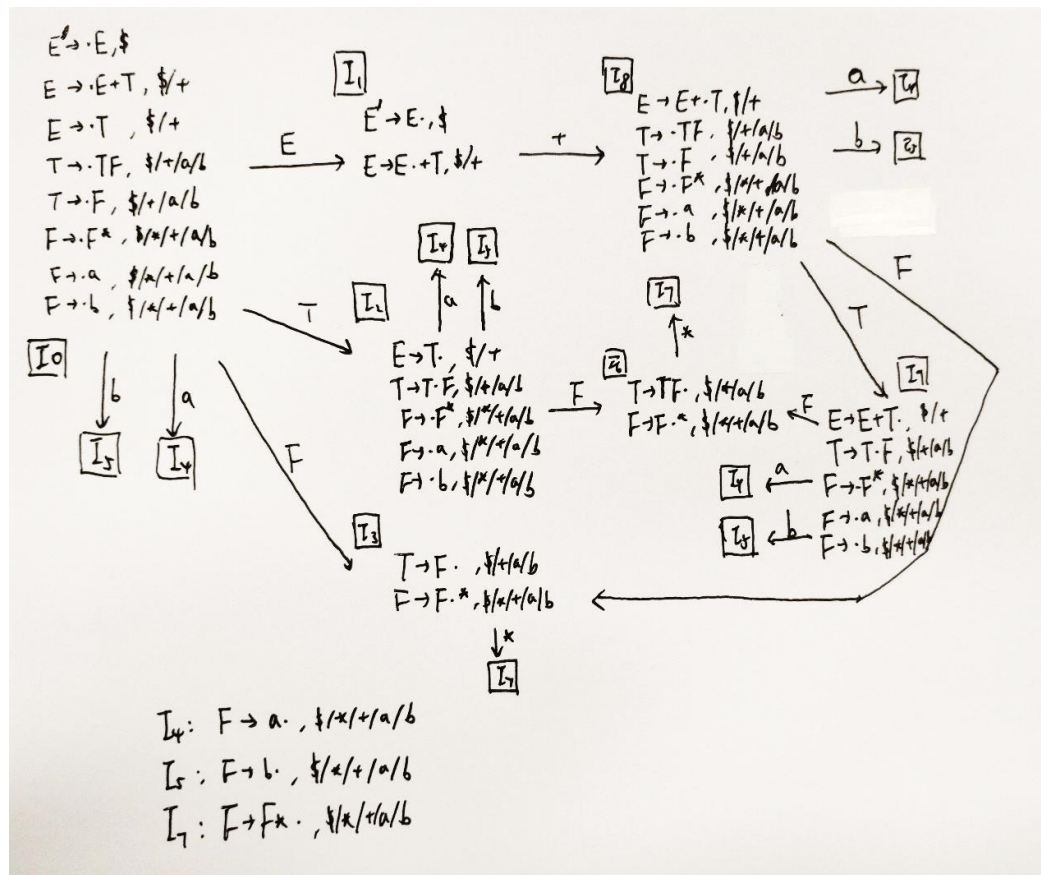 E'→·E,$
E→·E+T, $/+
E→·T , $/+
T→·TF, $/+/a/b
T→·F, $/+/a/b
F→·F*, $/*/+/a/b
F→·a, $/*/+/a/b
F→·b, $/*/+/a/b
I0
b
I5
a
I4
E
T
F
I1
E'→E·,$
E→E·+T,$/+
+
I8
E→E+·T,$/+
T→·TF, $/+/a/b
T→·F, $/+/a/b
F→·F*, $/*/+/a/b
F→·a, $/*/+/a/b
F→·b, $/*/+/a/b
a
I4
b
I5
F
T
I4
I5
a
b
I2
E→T·, $/+
T→T·F,$/+/a/b
F→·F*,$/*/+/a/b
F→·a,$/*/+/a/b
F→·b,$/*/+/a/b
F
I7
*
I6
T→TF·, $/+/a/b
F→F·*,$/*/+/a/b
F
E→E+T·, $/+
T→T·F,$/+/a/b
F→·F*,$/*/+/a/b
F→·a,$/*/+/a/b
F→·b,$/*/+/a/b
I4
a
I5
b
I3
T→F· ,$/+/a/b
F→F·*,$/*/+/a/b
*
I7
I4: F→a· , $/*/+/a/b
I5: F→b· , $/*/+/a/b
I7: F→F*· , $/*/+/a/b